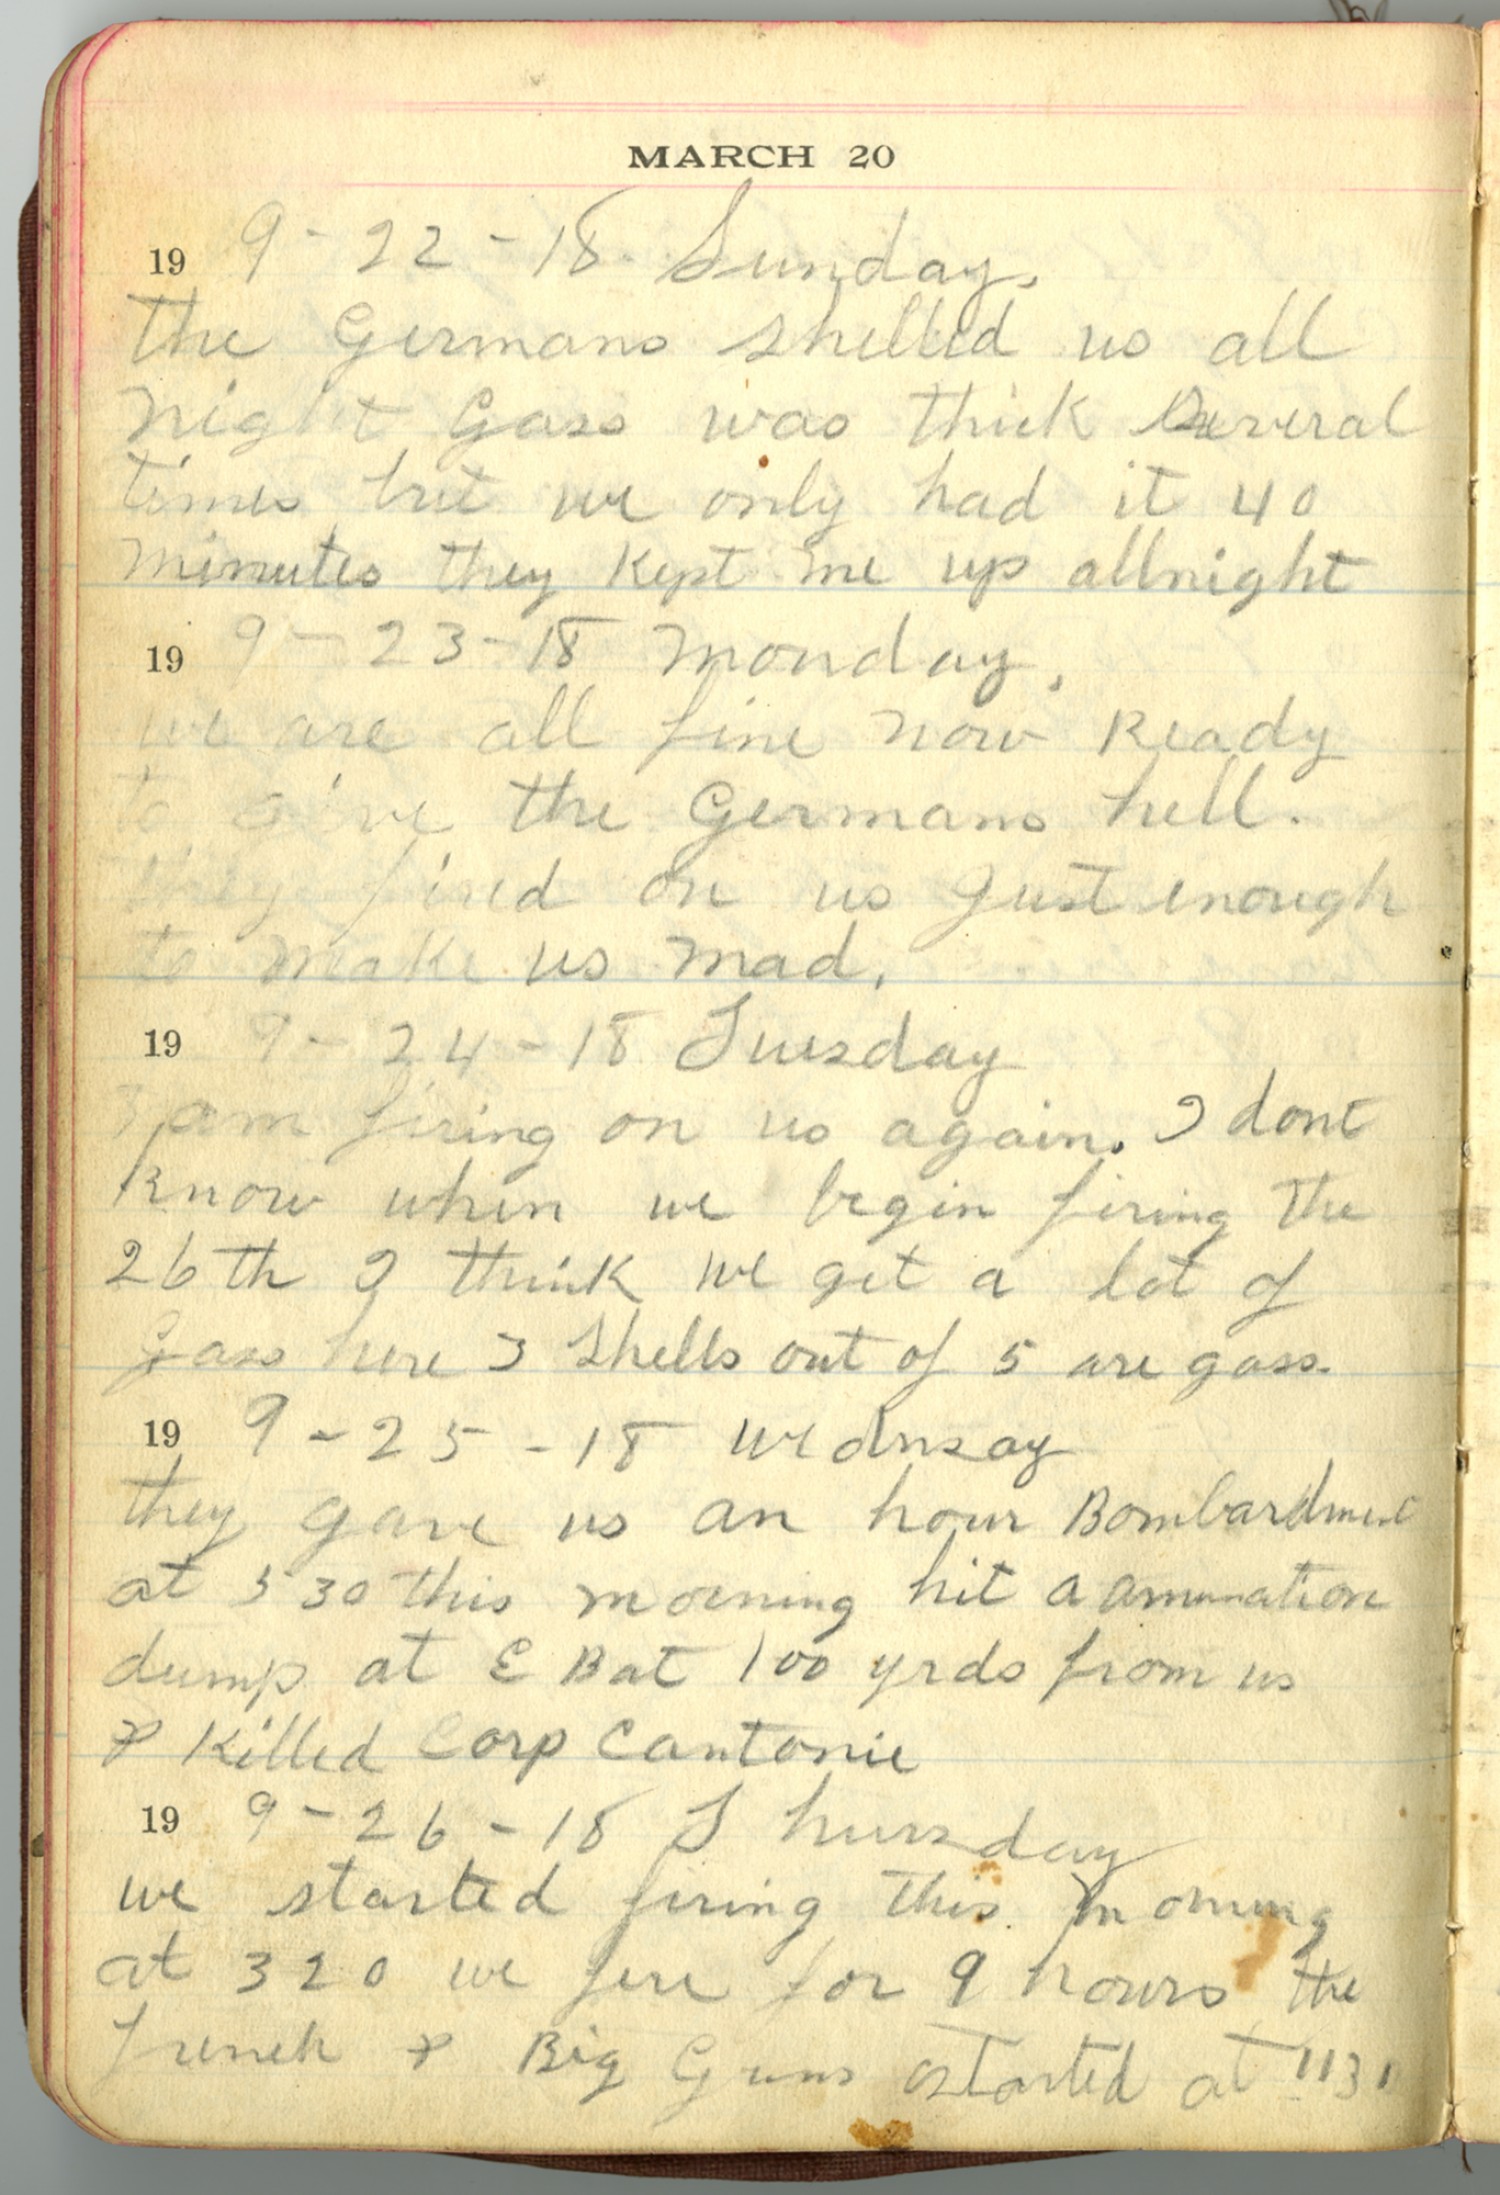 MARCH 20
19 9-22-18 Sunday.
the Germans shelled us all
night Gass was thick Several
times but we only had it 40
minutes they kept me up allnight
19 9-23-18 Monday.
we are all fine now Ready
to give the Germans hell.
they fired on us Just enough
to make us mad.
19 9-24-18 Tuesday
am firing on us again. I dont
know when we begin firing the
26th I think we get a lot of
Gass here 3 Shells out of 5 are gass.
19 9-25-18 Wednsay
they gave us an hour Bombardment
at 530 this morning hit a amunation
dump at E Bat 100 yrds from us
& Killed Corp Cantonie
19 9-26-18 Thursday
we started firing this morning
at 320 we fire for 9 hours the
french & Big Guns started at 1131